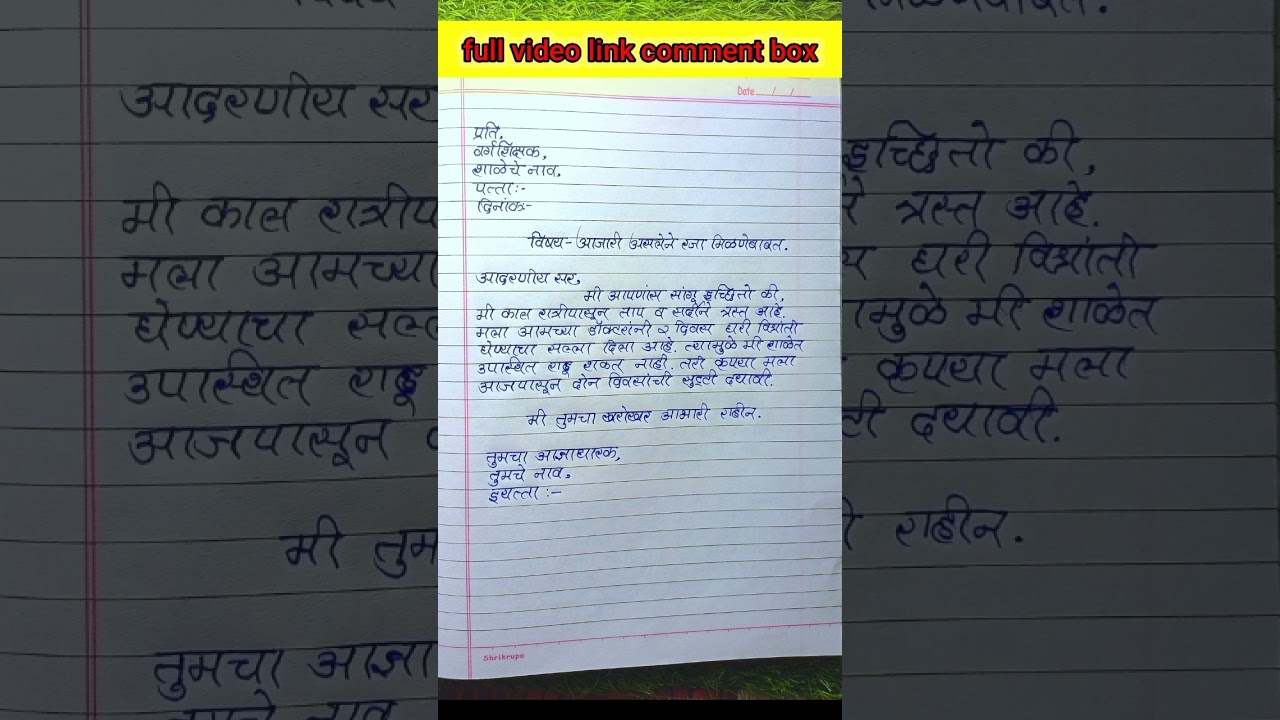 full video link comment box
Date / /
प्रति,
वर्गशिक्षक,
शाळेचे नाव.
पत्ता:-
दिनांक-
विषय- आजारी असलेने रजा मिळणेबाबत.
आदरणीय सर,
मी आपणांस सांगू इच्छितो की,
मी काल रात्रीपासून ताप व सर्दीने त्रस्त आहे.
मला आमच्या डॉक्टरांनी २ दिवस घरी विश्रांती
घेण्याचा सल्ला दिला आहे. त्यामुळे मी शाळेत
उपास्थित राहू शकत नाही. तरी कृपया मला
आजपासून दोन दिवसांची सुट्टी दयावी.
मी तुमचा खरोखर आभारी राहीन.
तुमचा आज्ञाधारक,
तुमचे नाव.
इयत्ता :-
Shrikrupa